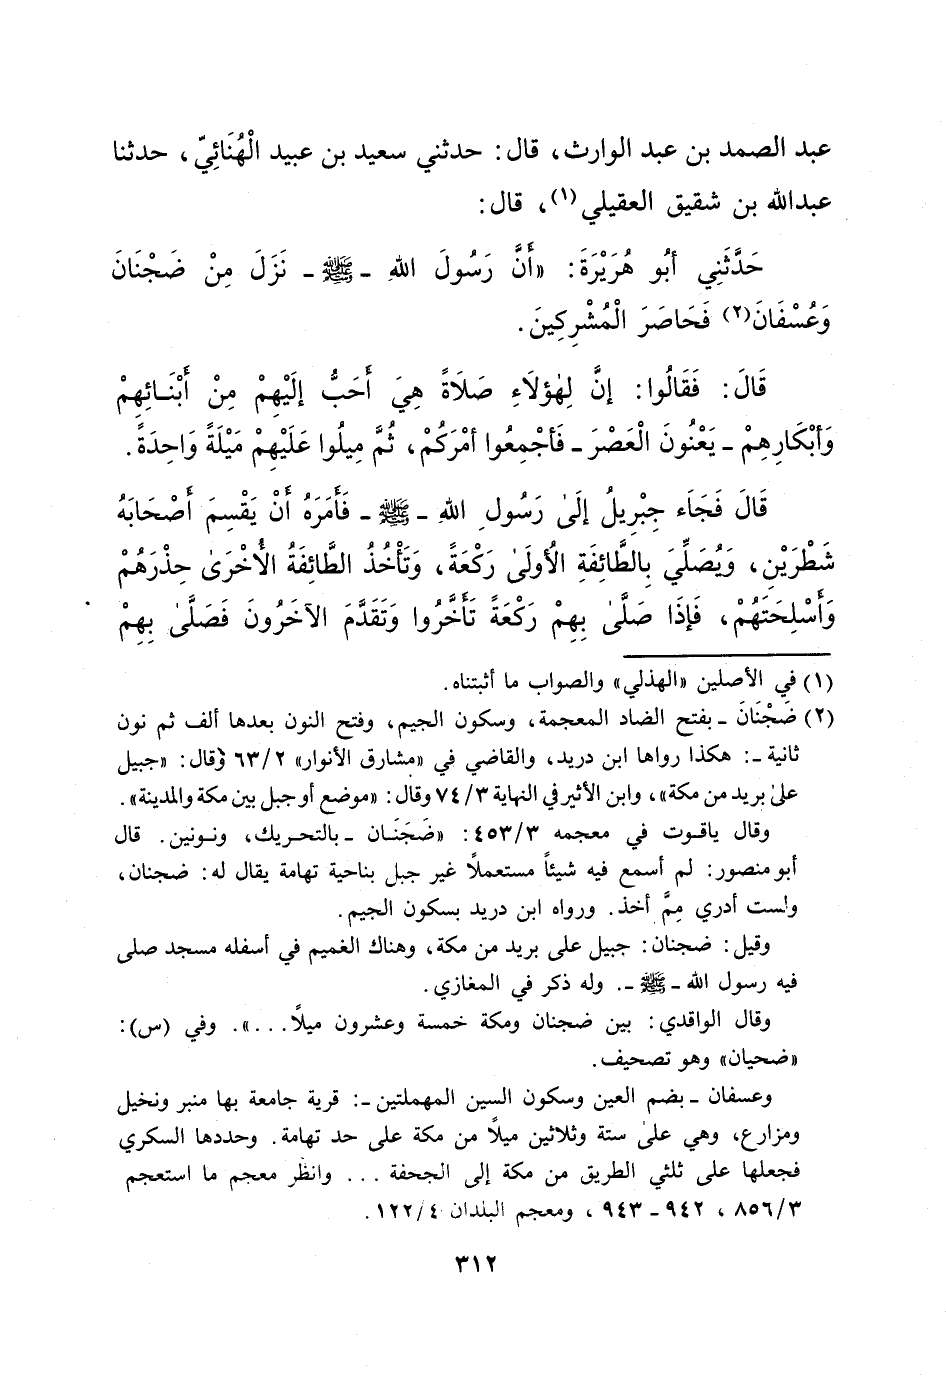 عبد الصمد بن عبد الوارث، قال: حدثني سعيد بن عبيد الْهُنَائِيّ، حدثنا
عبدالله بن شقيق العقيلي(١)، قال:
حَدَّثَنِي أَبُو هُرَيْرَةَ: «أَنَّ رَسُولَ اللهِ - ﷺ - نَزَلَ مِنْ ضَجْنَانَ
وَعُسْفَانَ(٢) فَحَاصَرَ الْمُشْرِكِينَ.
قَالَ: فَقَالُوا: إِنَّ لِهٰؤُلَاءِ صَلَاةً هِيَ أَحَبُّ إِلَيْهِمْ مِنْ أَبْنَـائِهِمْ
وَأَبْكَارِهِمْ - يَعْنُونَ الْعَصْرَ - فَأَجْمِعُوا أَمْرَكُمْ، ثُمَّ مِيلُوا عَلَيْهِمْ مَيْلَةً وَاحِدَةً.
قَالَ فَجَاءَ جِبْرِيلُ إِلَىٰ رَسُولِ اللهِ - ﷺ - فَأَمَرَهُ أَنْ يَقْسِمَ أَصْحَابَهُ
شَطْرَيْنِ، وَيُصَلِّيَ بِالطَّائِفَةِ الْأُولَىٰ رَكْعَةً، وَتَأْخُذُ الطَّائِفَةُ الْأُخْرَىٰ حِذْرَهُمْ
وَأَسْلِحَتَهُمْ، فَإِذَا صَلَّىٰ بِهِمْ رَكْعَةً تَأَخَّرُوا وَتَقَدَّمَ الآخَرُونَ فَصَلَّىٰ بِهِمْ
(١) في الأصلين «الهذلي» والصواب ما أثبتناه.
(٢) ضَجْنَانَ - بفتح الضاد المعجمة، وسكون الجيم، وفتح النون بعدها ألف ثم نون
ثانية -: هكذا رواها ابن دريد، والقاضي في «مشارق الأنوار» ٦٣/٢ وقال: «جبيل
علىٰ بريد من مكة»، وابن الأثير في النهاية ٧٤/٣ وقال: «موضع أو جبل بين مكة والمدينة».
وقال ياقوت في معجمه ٤٥٣/٣: «ضَجَنَـان - بالتحريك، ونونين. قال
أبو منصور: لم أسمع فيه شيئاً مستعملاً غير جبل بناحية تهامة يقال له: ضجنان،
ولست أدري مِمَّ أخذ. ورواه ابن دريد بسكون الجيم.
وقيل: ضجنان: جبيل على بريد من مكة، وهناك الغميم في أسفله مسجد صلى
فيه رسول الله - ﷺ -. وله ذكر في المغازي.
وقال الواقدي: بين ضجنان ومكة خمسة وعشرون ميلاً...». وفي (س):
«ضحيان» وهو تصحيف.
وعسفان - بضم العين وسكون السين المهملتين -: قرية جامعة بها منبر ونخيل
ومزارع، وهي علىٰ ستة وثلاثين ميلاً من مكة على حد تهامة. وحددها السكري
فجعلها على ثلثي الطريق من مكة إلى الجحفة ... وانظر معجم ما استعجم
٨٥٦/٣ ، ٩٤٢ - ٩٤٣ ، ومعجم البلدان ١٢٢/٤.
٣١٢